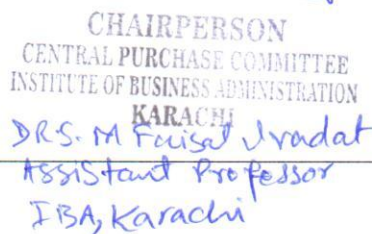 CHAIRPERSON
CENTRAL PURCHASE COMMITTEE
INSTITUTE OF BUSINESS ADMINISTRATION
KARACHI
DRS. M Faisal Iradat
Assistant Professor
IBA, Karachi